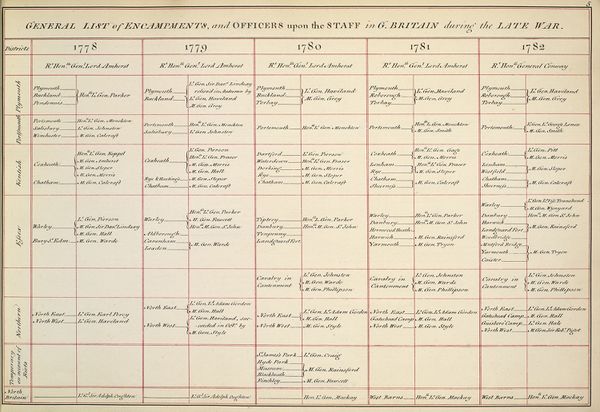 GENERAL LIST of ENCAMPMENTS, and OFFICERS upon the STAFF in G. BRITAIN during the LATE WAR.
Districts 1778 1779 1780 1781 1782
Rt. Honble. Genl. Lord Amherst Rt. Honble. Genl. Lord Amherst Rt. Honble. Genl. Lord Amherst Rt. Honble. Genl. Lord Amherst Rt. Honble. General Conway
Plymouth
Plymouth
Buckland
Pendennis
Honble. Lt. Gen. Parker
Plymouth
Buckland
Lt. Gen. Sir Davd. Lindsay
relieved in Autumn by
Lt. Gen. Haviland
M. Gen. Grey
Plymouth
Buckland
Torbay
Lt. Gen. Haviland
M. Gen. Grey
Plymouth
Roborough
Torbay
Lt. Gen. Haviland
M. Gen. Grey
Plymouth
Roborough
Torbay
Lt. Gen. Haviland
M. Gen. Grey
Portsmouth
Portsmouth Honble. Lt. Gen. Monckton
Salisbury Lt. Gen. Johnston
Winchester M. Gen. Calcraft
Portsmouth Honble. Lt. Gen. Monckton
Salisbury Lt. Gen. Johnston
Portsmouth Honble. Lt. Gen. Monckton
Portsmouth
Honble. Lt. Gen. Monckton
M. Gen. Smith
Portsmouth
Lt. Gen. Ld. George Lenox
M. Gen. Smith
Kentish
Coxheath
Honble. Lt. Gen. Keppel
M. Gen. Amherst
M. Gen. Sloper
M. Gen. Morris
Chatham M. Gen. Calcraft
Coxheath
Lt. Gen. Pierson
Honble. Lt. Gen. Fraser
M. Gen. Morris
M. Gen. Hall
Rye & Hastings M. Gen. Sloper
Chatham M. Gen. Calcraft
Dartford Lt. Gen. Pierson
Waterdown Honble. Lt. Gen. Fraser
Dorking M. Gen. Morris
Rye M. Gen. Sloper
Chatham M. Gen. Calcraft
Coxheath
Honble. Lt. Gen. Gage
M. Gen. Morris
Lenham Honble. Lt. Gen. Fraser
Rye M. Gen. Sloper
Chatham
Sheerness
M. Gen. Calcraft
Coxheath
Lt. Gen. Pitt
M. Gen. Morris
Lenham
Westfield
M. Gen. Sloper
Chatham
Sheerness
M. Gen. Calcraft
Essex
Warley
Lt. Gen. Pierson
M. Gen. Sir Davd. Lindsay
M. Gen. Hall
Bury St. Edm. M. Gen. Warde
Warley
Honble. Lt. Gen. Parker
M. Gen. Fawcett
Honble. M. Gen. St. John
Aldborough
Cavenham
Leaden
M. Gen. Warde
Tiptery Honble. Lt. Gen. Parker
Danbury Honble. M. Gen. St. John
Tenpenny
Landguard Fort
Warley Honble. Lt. Gen. Parker
Danbury Honble. M. Gen. St. John
Hornwood Heath
Harwich M. Gen. Rainsford
Yarmouth M. Gen. Tryon
Warley
Lt. Gen. Ld. Visct. Townshend
M. Gen. Wynyard
Danbury Honble. M. Gen. St. John
Harwich
Landguard Fort
Woodbridge
M. Gen. Rainsford
Mutford Bridge
Yarmouth
Caister
M. Gen. Tryon
Cavalry in
Cantonment
Lt. Gen. Johnston
M. Gen. Warde
M. Gen. Phillipson
Cavalry in
Cantonment
Lt. Gen. Johnston
M. Gen. Warde
M. Gen. Phillipson
Cavalry in
Cantonment
Lt. Gen. Johnston
M. Gen. Warde
M. Gen. Phillipson
Northern
North East Lt. Gen. Earl Percy
North West Lt. Gen. Haviland
North East
Lt. Gen. Ld. Adam Gordon
M. Gen. Hall
North West
Lt. Gen. Haviland, suc-
ceeded in Octr. by
M. Gen. Style
North East
Lt. Gen. Ld. Adam Gordon
M. Gen. Hall
North West M. Gen. Style
North East Lt. Gen. Ld. Adam Gordon
Gateshead Camp M. Gen. Hall
North West M. Gen. Style
North East Lt. Gen. Ld. Adam Gordon
Gateshead Camp M. Gen. Hall
Lt. Gen. Hale
North West M. Gen. Sir Robt. Pigot
Temporary
on account of
Riots
St. James's Park Lt. Gen. Craig
Hyde Park
Blackheath
M. Gen. Rainsford
Finchley M. Gen. Fawcett
North
Britain
Lt. Gl. Sir Adolph. Oughton
Lt. Gl. Sir Adolph. Oughton
Hon. Lt. Gen. Mackay
West Barns Honble. Lt. Gen. Mackay
West Barns Honble. Lt. Gen. Mackay